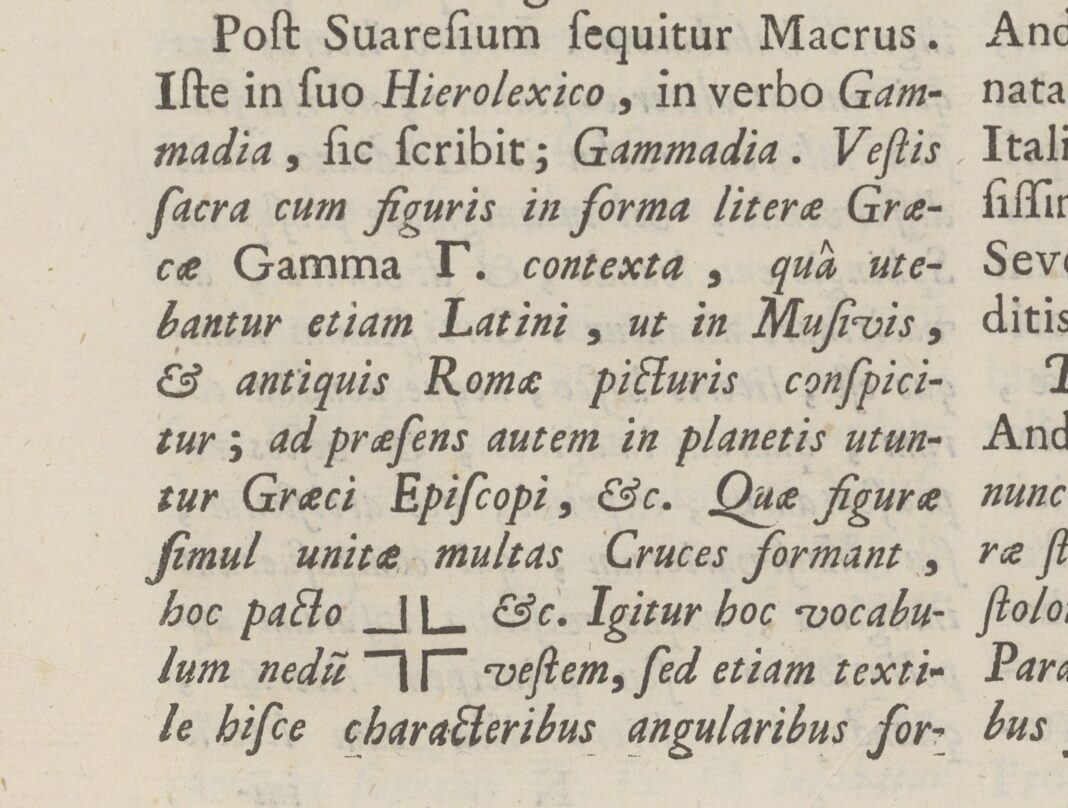 Poſt Suareſium ſequitur Macrus.
Iſte in ſuo Hierolexico, in verbo Gam-
madia, ſic ſcribit; Gammadia. Veſtis
ſacra cum figuris in forma literæ Græ-
cæ Gamma Γ. contexta, quâ ute-
bantur etiam Latini, ut in Muſivis,
& antiquis Romæ picturis conſpici-
tur; ad præſens autem in planetis utun-
tur Græci Epiſcopi, &c. Quæ figuræ
ſimul unitæ multas Cruces formant,
hoc pacto &c. Igitur hoc vocabu-
lum nedũ veſtem, ſed etiam texti-
le hiſce characteribus angularibus for-
nata
ditis
nunc
ræ
bus